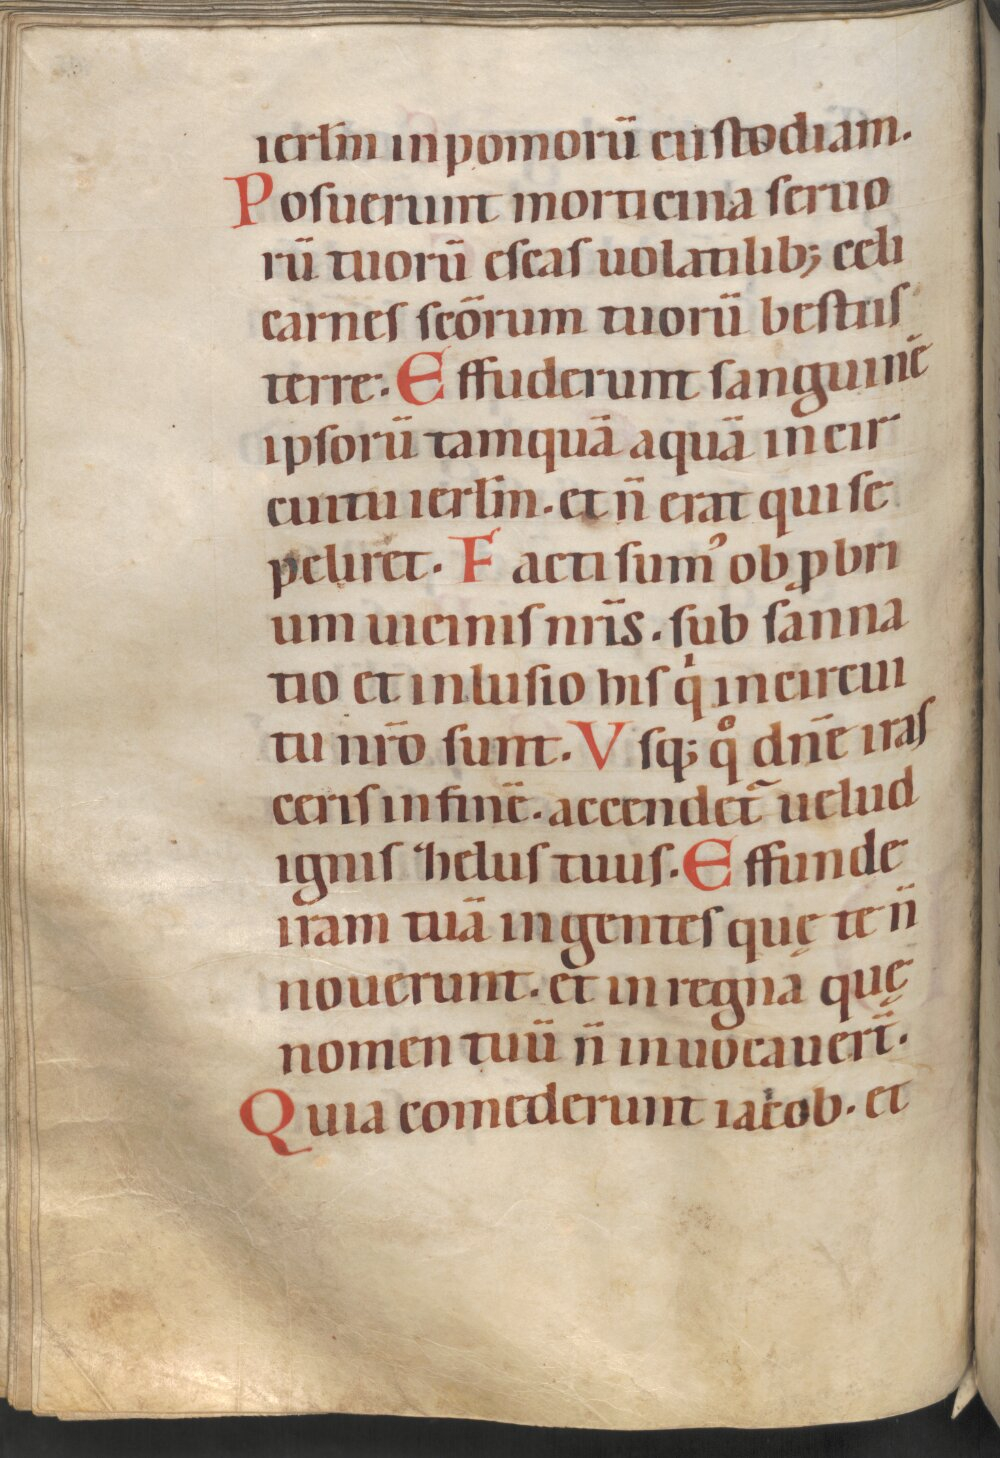 ierłm in pomorū custodiam.
Posuerunt morticina seruo
rū tuorū escas uolatilib; celi
carnes scōrum tuorū bestiis
terre. Effuderunt sanguinē
ipsorū tamquā aquā in cir
cuitu ierłm. et n̄ erat qui se
peliret. Facti sumꝰ obꝓbri
um uicinis nr̄is. subsanna
tio et inlusio his qͥ in circui
tu nr̄o sunt. Vsq; qͦ dn̄e iras
ceris in finē. accendet᷑ uelud
ignis helus tuus. Effunde
iram tuā in gentes quę te n̄
nouerunt. et in regna quę
nomen tuū n̄ inuocauer̄t.
Quia comederunt iacob. et